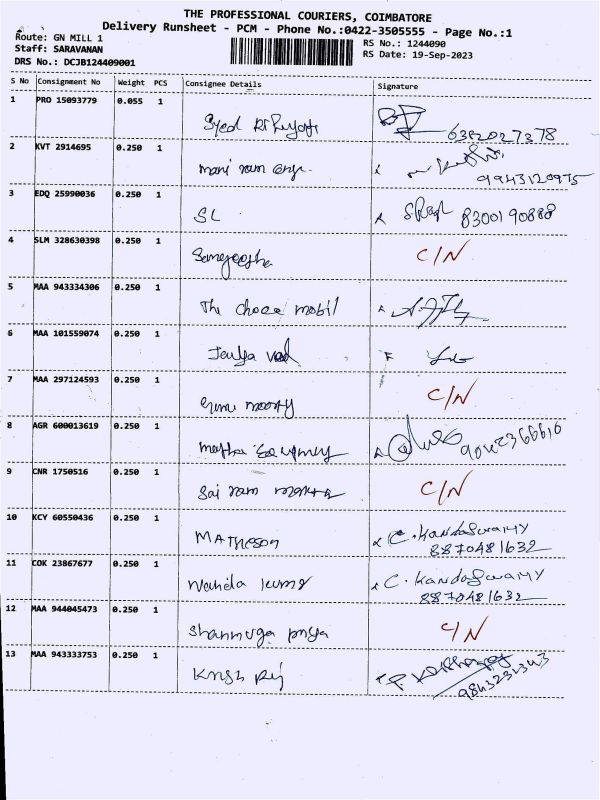 THE PROFESSIONAL COURIERS, COIMBATORE
Delivery Runsheet - PCM - Phone No.:0422-3505555 - Page No.:1
Route: GN MILL 1
Staff: SARAVANAN
DRS No.: DCJB124409001
RS No.: 1244090
RS Date: 19-Sep-2023
S No Consignment No Weight PCS Consignee Details Signature
1 PRO 15093779 0.055 1
Syed 6382027378
2 KVT 2914695 0.250 1
mani ram
9943120975
3 EDQ 25990036 0.250 1
SL 8300190888
4 SLM 328630398 0.250 1
C/N
5 MAA 943334306 0.250 1
The choce mobil
6 MAA 101559074 0.250 1
7 MAA 297124593 0.250 1
C/N
moorty
8 AGR 600013619 0.250 1
9 CNR 1750516 0.250 1
Sai ram C/N
10 KCY 60550436 0.250 1
MATHESON C. Kandaswamy
8870481632
11 COK 23867677 0.250 1
Nanda kumr C. Kandaswamy
8870481632
12 MAA 944045473 0.250 1
Shanmuga priya C/N
13 MAA 943333753 0.250 1